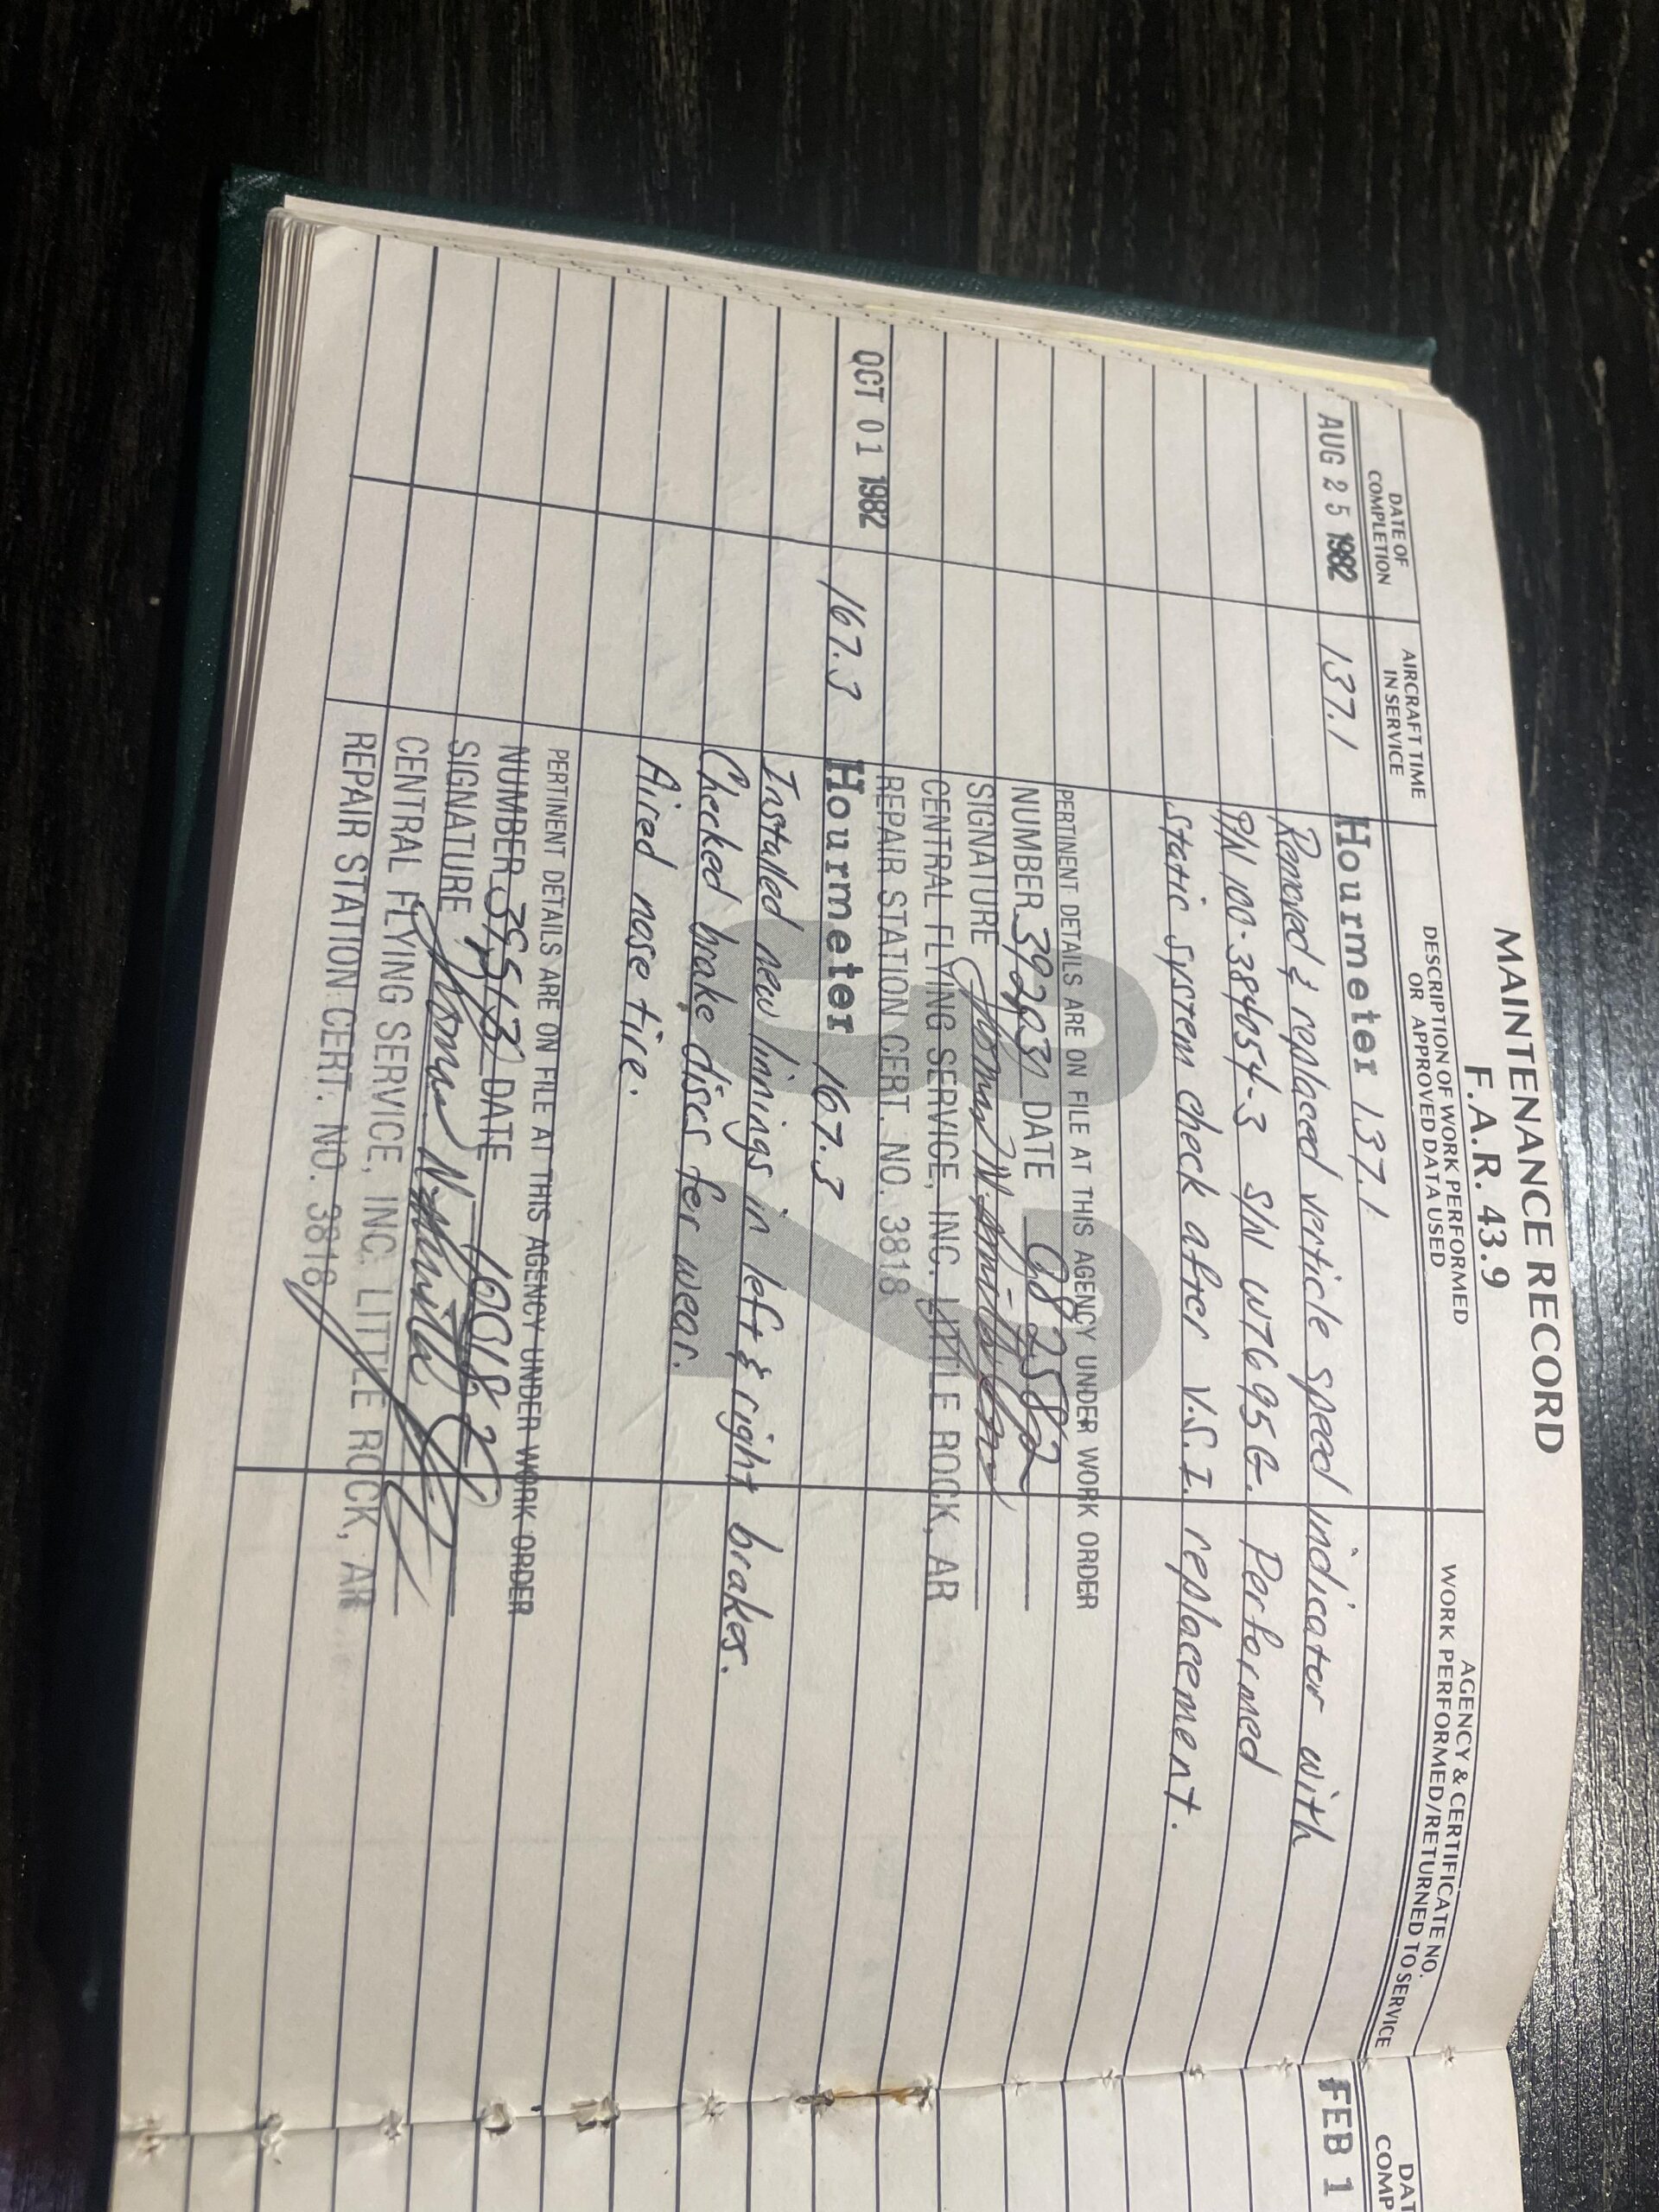 MAINTENANCE RECORD
F.A.R. 43.9
DATE OF COMPLETION
AIRCRAFT TIME IN SERVICE
DESCRIPTION OF WORK PERFORMED OR APPROVED DATA USED
AGENCY & CERTIFICATE NO. WORK PERFORMED/RETURNED TO SERVICE
AUG 25 1982 137.1 Hourmeter 137.1
Removed & replaced verticle speed indicator with
P/N 100-384054-3 S/N WT6956. Performed
static system check after V.S.I. replacement.
PERTINENT DETAILS ARE ON FILE AT THIS AGENCY UNDER WORK ORDER
NUMBER 39203 DATE 082582
SIGNATURE Thomas
CENTRAL FLYING SERVICE, INC. LITTLE ROCK, AR
REPAIR STATION CERT. NO. 3818
OCT 01 1982 167.3 Hourmeter 167.3
Installed new linings in left & right brakes.
Checked brake discs for wear.
Aired nose tire.
PERTINENT DETAILS ARE ON FILE AT THIS AGENCY UNDER WORK ORDER
NUMBER 39513 DATE 100182
SIGNATURE Thomas
CENTRAL FLYING SERVICE, INC. LITTLE ROCK, AR
REPAIR STATION CERT. NO. 3818
DAT
COMP
FEB 1